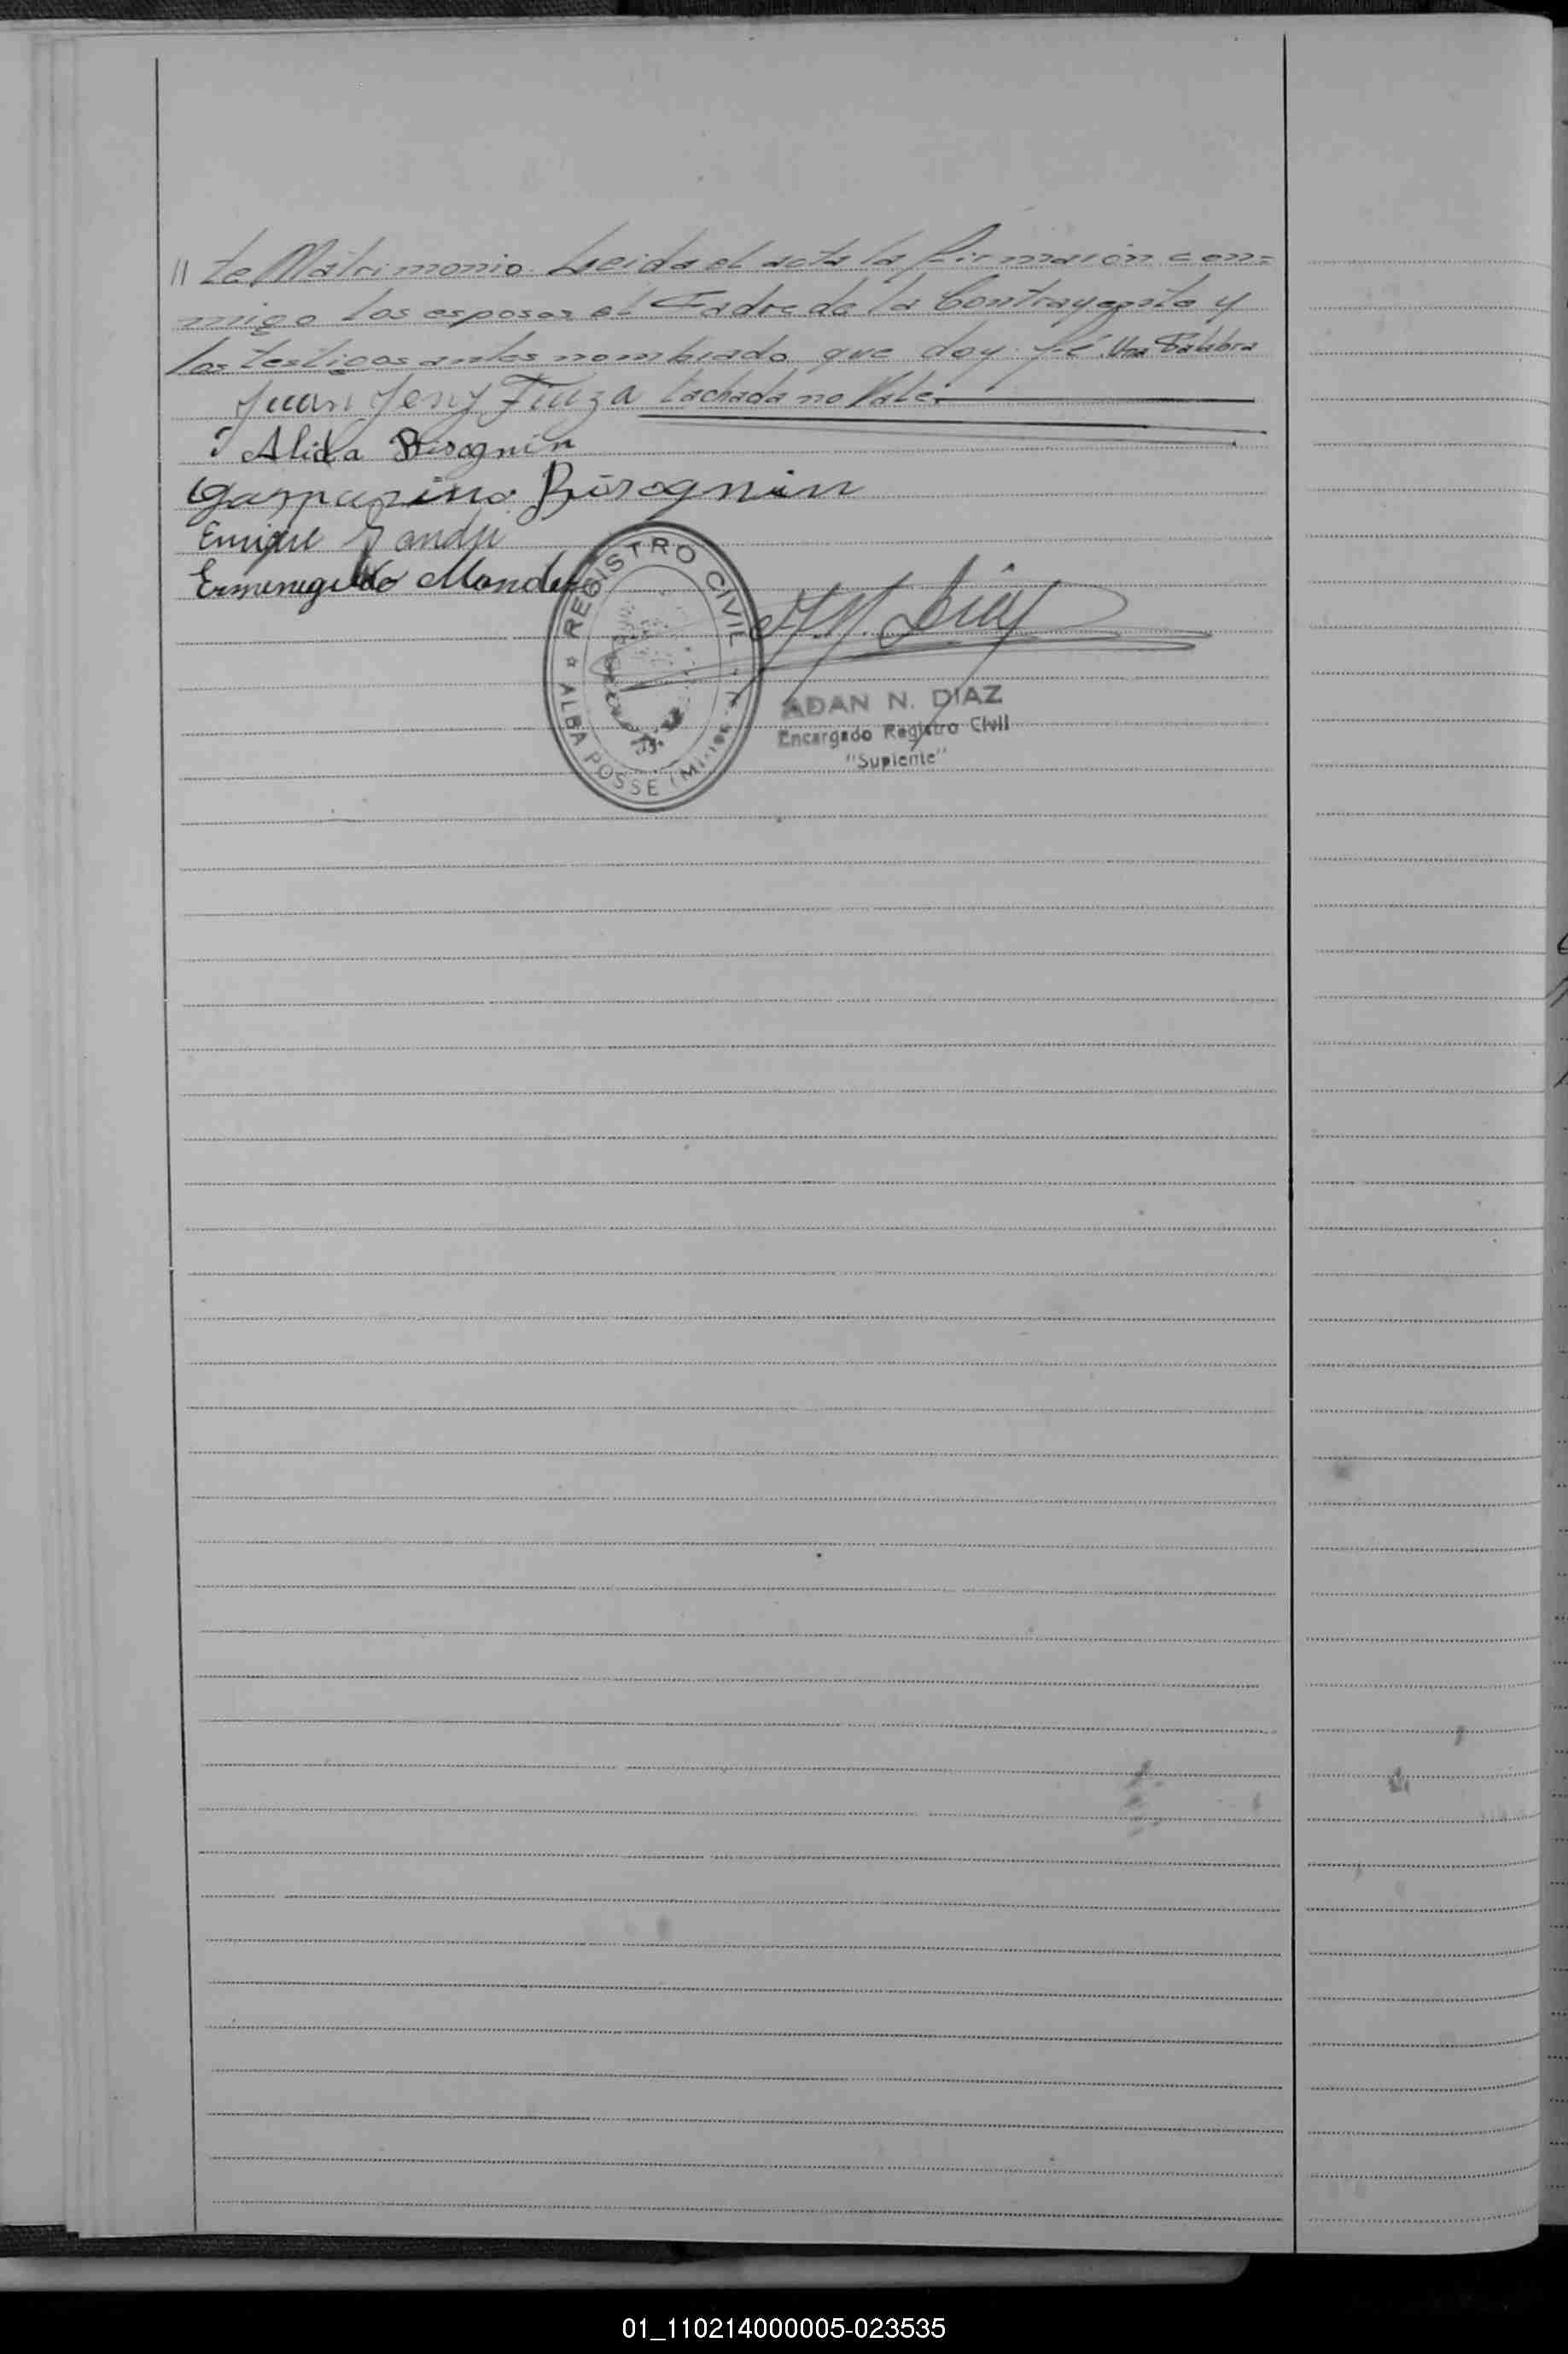 // te Matrimonio. Leida el acta la firmaron con=
migo los esposos el Padre de la Contrayente y
los testigos antes nombrado que doy fé. Una Palabra
Juan Jeny Fiuza tachada no Vale.
Alida Bisognin
Gasparino Bisognin
Enrique
Ermenegildo Mendez
REGISTRO CIVIL
ALBA POSSE (Mi-
N. Diaz
ADAN N. DIAZ
Encargado Registro Civil
"Suplente"
01_110214000005-023535